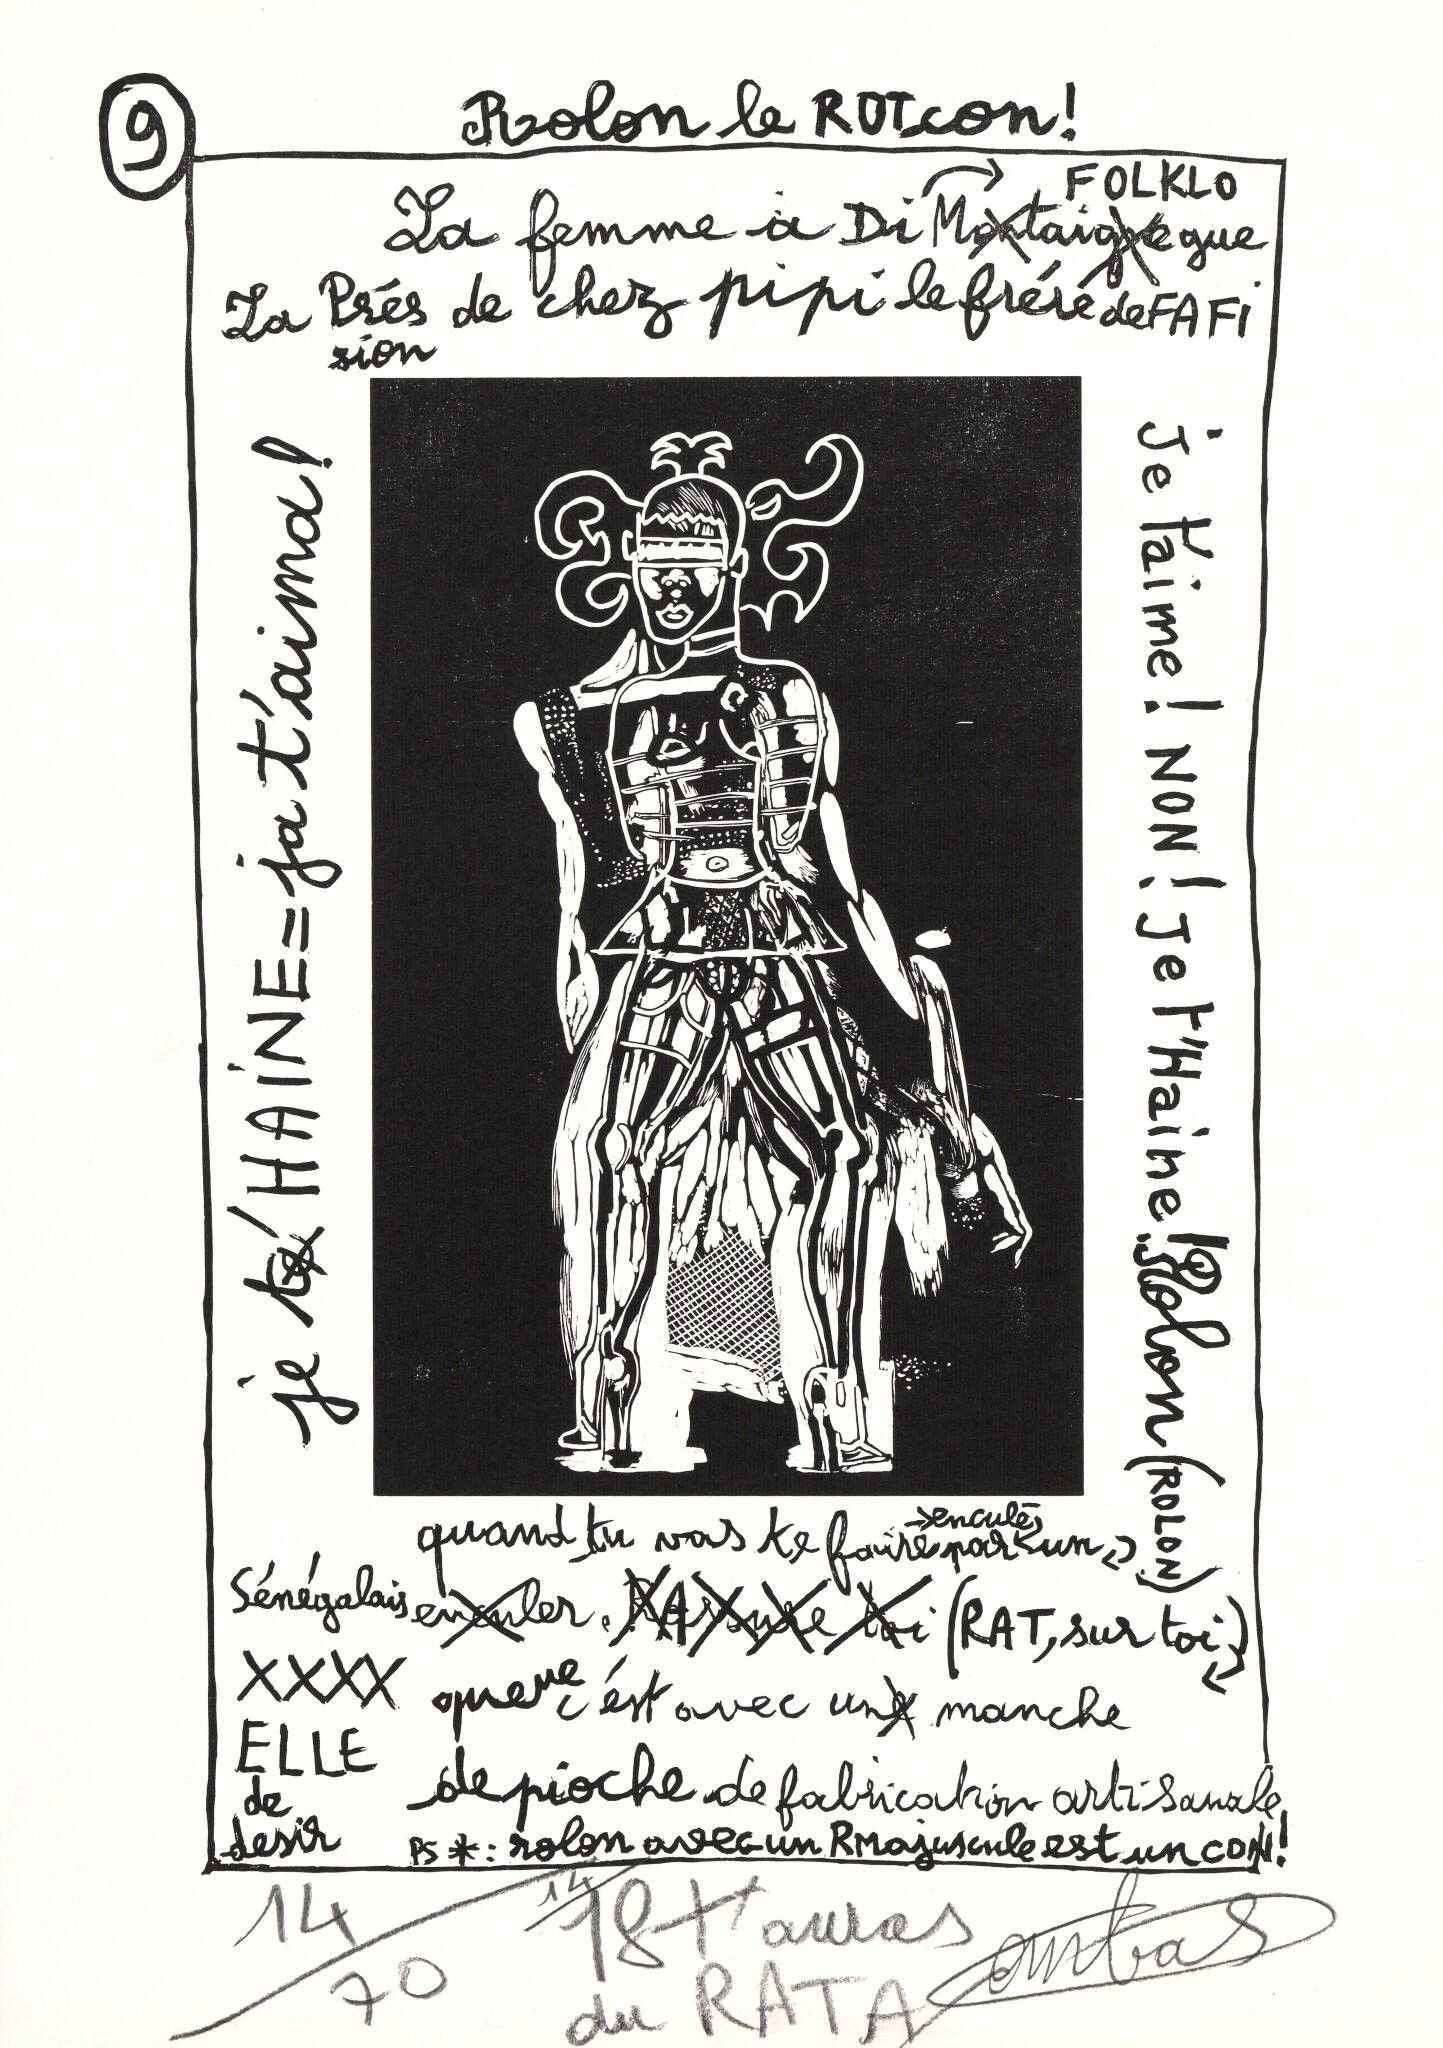 9
Rolon le ROTcon!
FOLKLO
La femme à Di Montaigne gue
La Près de chez pipi le fréré de FAFi
sion
je té HAINE = ja t'aima!
je t'aime! NON! je t'Haine! Rolon (ROLON)
quand tu vas te faire par un
enculé
Sénégalais enculer. RAssure toi (RAT, sur toi)
XXXX queue c'ést avec une manche
ELLE
de de pioche de fabrication artisanale
desir PS * : rolon avec un R majuscule est un CON!
14/70 14/18 t'auras
du RATA
combas